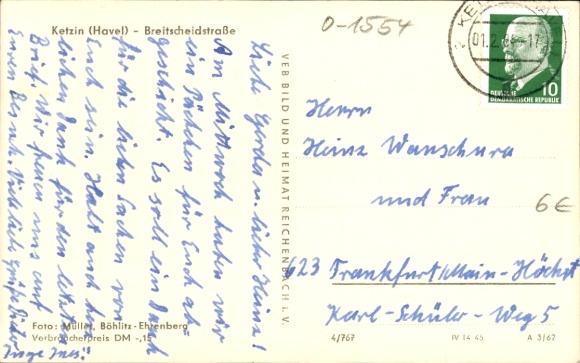 Ketzin (Havel) - Breitscheidstraße
O-1554
01.2.
DEUTSCHE
DEMOKRATISCHE REPUBLIK
10
Liebe Gerda u. lieber Heinz!
Am Mittwoch haben wir
ein Päckchen für Euch ab-
geschickt. Es soll ein Dank
für die lieben Sachen von
Euch sein. Habt auch herz-
lichen Dank für den letzten
Brief. Wir freuen uns auf
Euren Besuch. Vielleicht
Inge
VEB BILD UND HEIMAT REICHENBACH i. V.
Herrn
Heinz Wanschura
und Frau
6€
623 Frankfurt/Main-Höchst
Karl-Schüler-Weg 5
Foto: Müller, Böhlitz-Ehrenberg
Verbraucherpreis DM -,15
4/767
IV 14 45
A 3/67